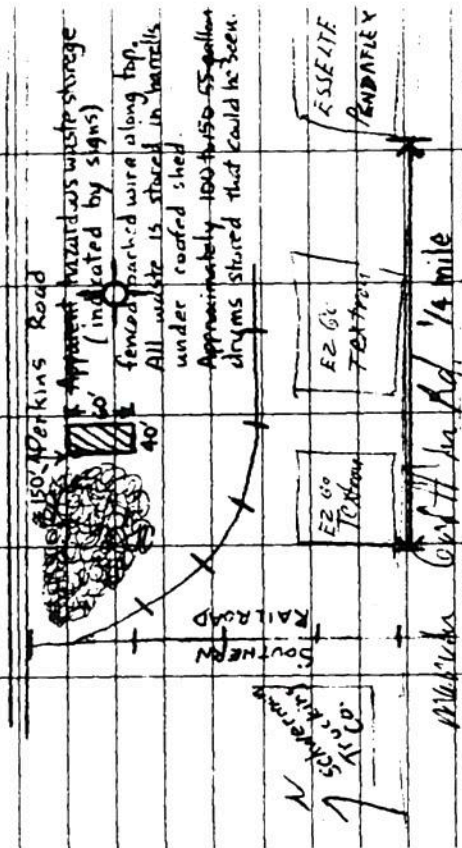 Perkins Road
≈150'
Apparent hazardous waste storage
(indicated by signs)
60'
fenced, barbed wire along top.
40'
All waste is stored in barrells
under roofed shed
Approximately 100 to 150 55-gallon
drums stored that could be seen.
SOUTHERN
RAILROAD
Schwerman
Trucking
Co.
N
EZ Go
Textron
EZ Go
Textron
ESSELTE
PENDAFLEX
Marvin Griffin Rd. 1/4 mile